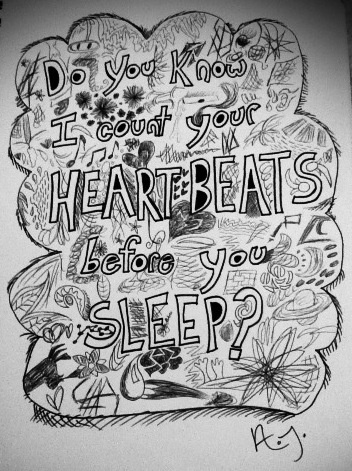 Do you know
I count your
HEARTBEATS
before you
SLEEP?
A.J.